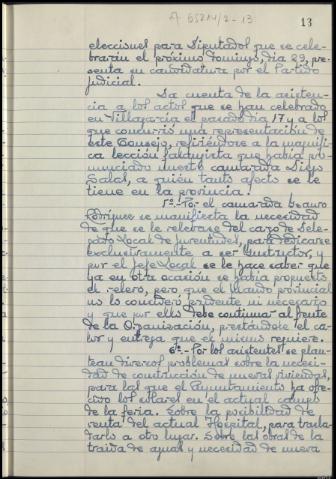 A 55211/2-13
13
elecciones para Diputados que se cele-
brarán el próximo domingo, día 29, pre-
senta su candidatura por el Partido
Judicial.
Da cuenta de la asisten-
cia a los actos que se han celebrado
en Villagarcía el pasado día 17 y a los
que concurrió una representación de
este Consejo, refiriéndose a la magnífi-
ca lección falangista que había pro-
nunciado nuestro camarada
Salas, a quien tanto afecto se le
tiene en la provincia.
5º.- Por el camarada
Rodríguez se manifiesta la necesidad
de que se le relevase del cargo de Dele-
gado Local de Juventudes, para dedicarse
exclusivamente a ser Instructor, y
por el Jefe Local se le hace saber que
ya en otra ocasión se había propuesto
el relevo, pero que el Mando provincial
no lo consideró prudente ni necesario
y que por ello debe continuar al frente
de la Organización, prestándole el ca-
lor y entrega que el mismo requiere.
6º.- Por los asistentes se plan-
tean diversos problemas sobre la necesi-
dad de construcción de nuevas viviendas,
para las que el Ayuntamiento ha ofre-
cido los solares en el actual campo
de la feria. Sobre la posibilidad de
venta del actual Hospital, para trasla-
darlo a otro lugar. Sobre las obras de la
traída de aguas y necesidad de nueva